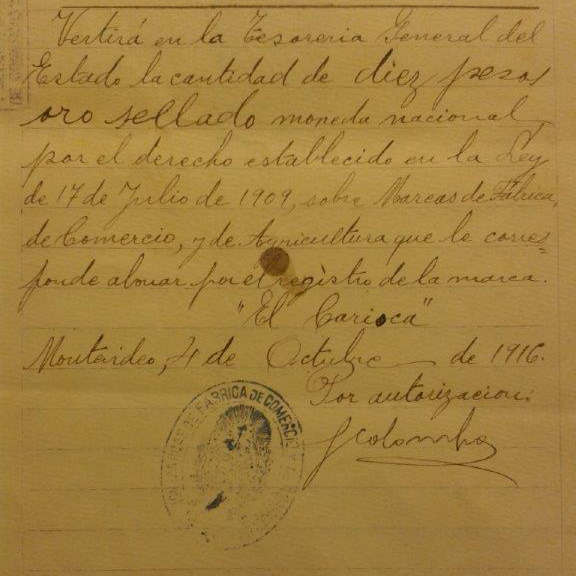 Vertirá en la Tesoreria General del
Estado la cantidad de diez pesos
oro sellado moneda nacional,
por el derecho establecido en la Ley
de 17 de Julio de 1909, sobre Marcas de Fábrica,
de Comercio, y de Agricultura que le corres=
ponde abonar por el registro de la marca.
"El Carioca"
Montevideo, 4 de Octubre de 1916.
Por autorizacion:
DE FABRICA DE COMERCIO